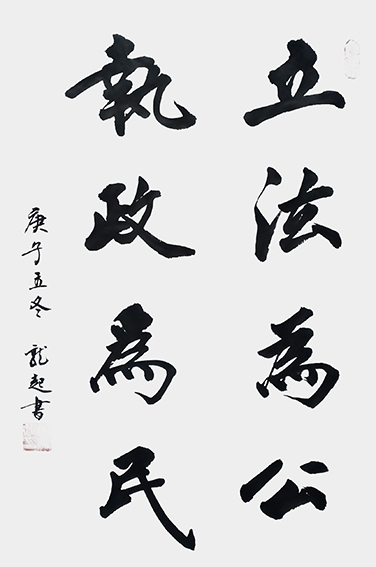 立法為公
執政為民
庚子五冬 龍起書